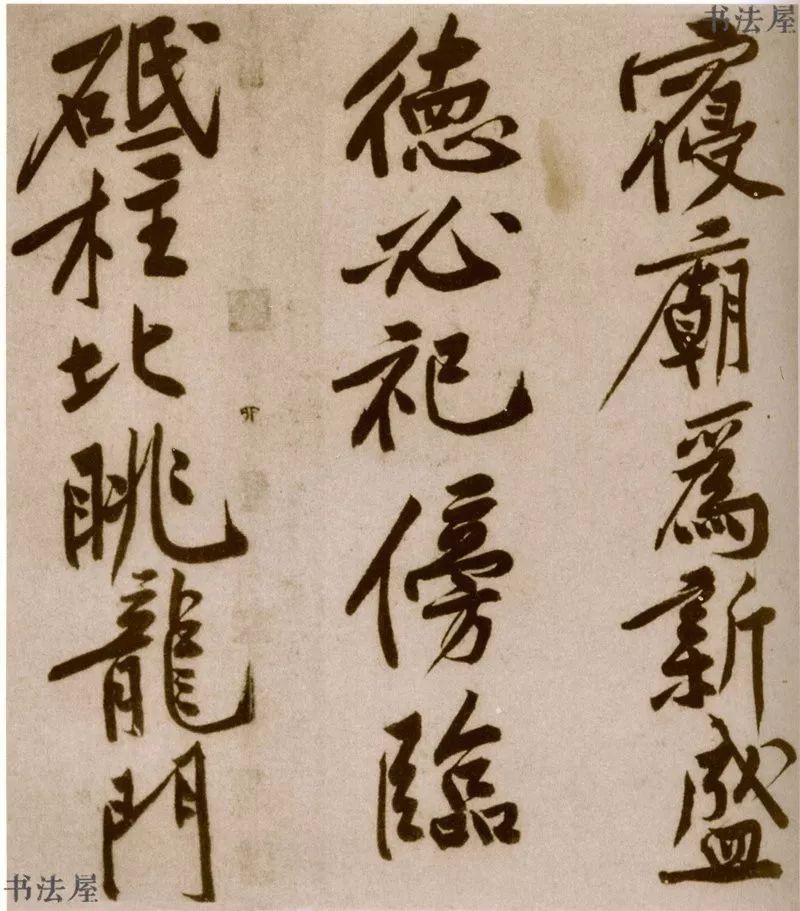 书法屋
寑廟為新盛
德必祀傍臨
砥柱北眺龍門
书法屋